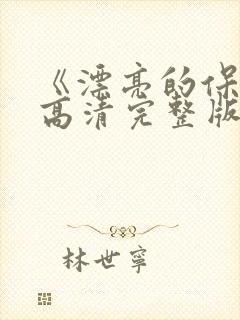 《漂亮的保
高清完整版
林世寧